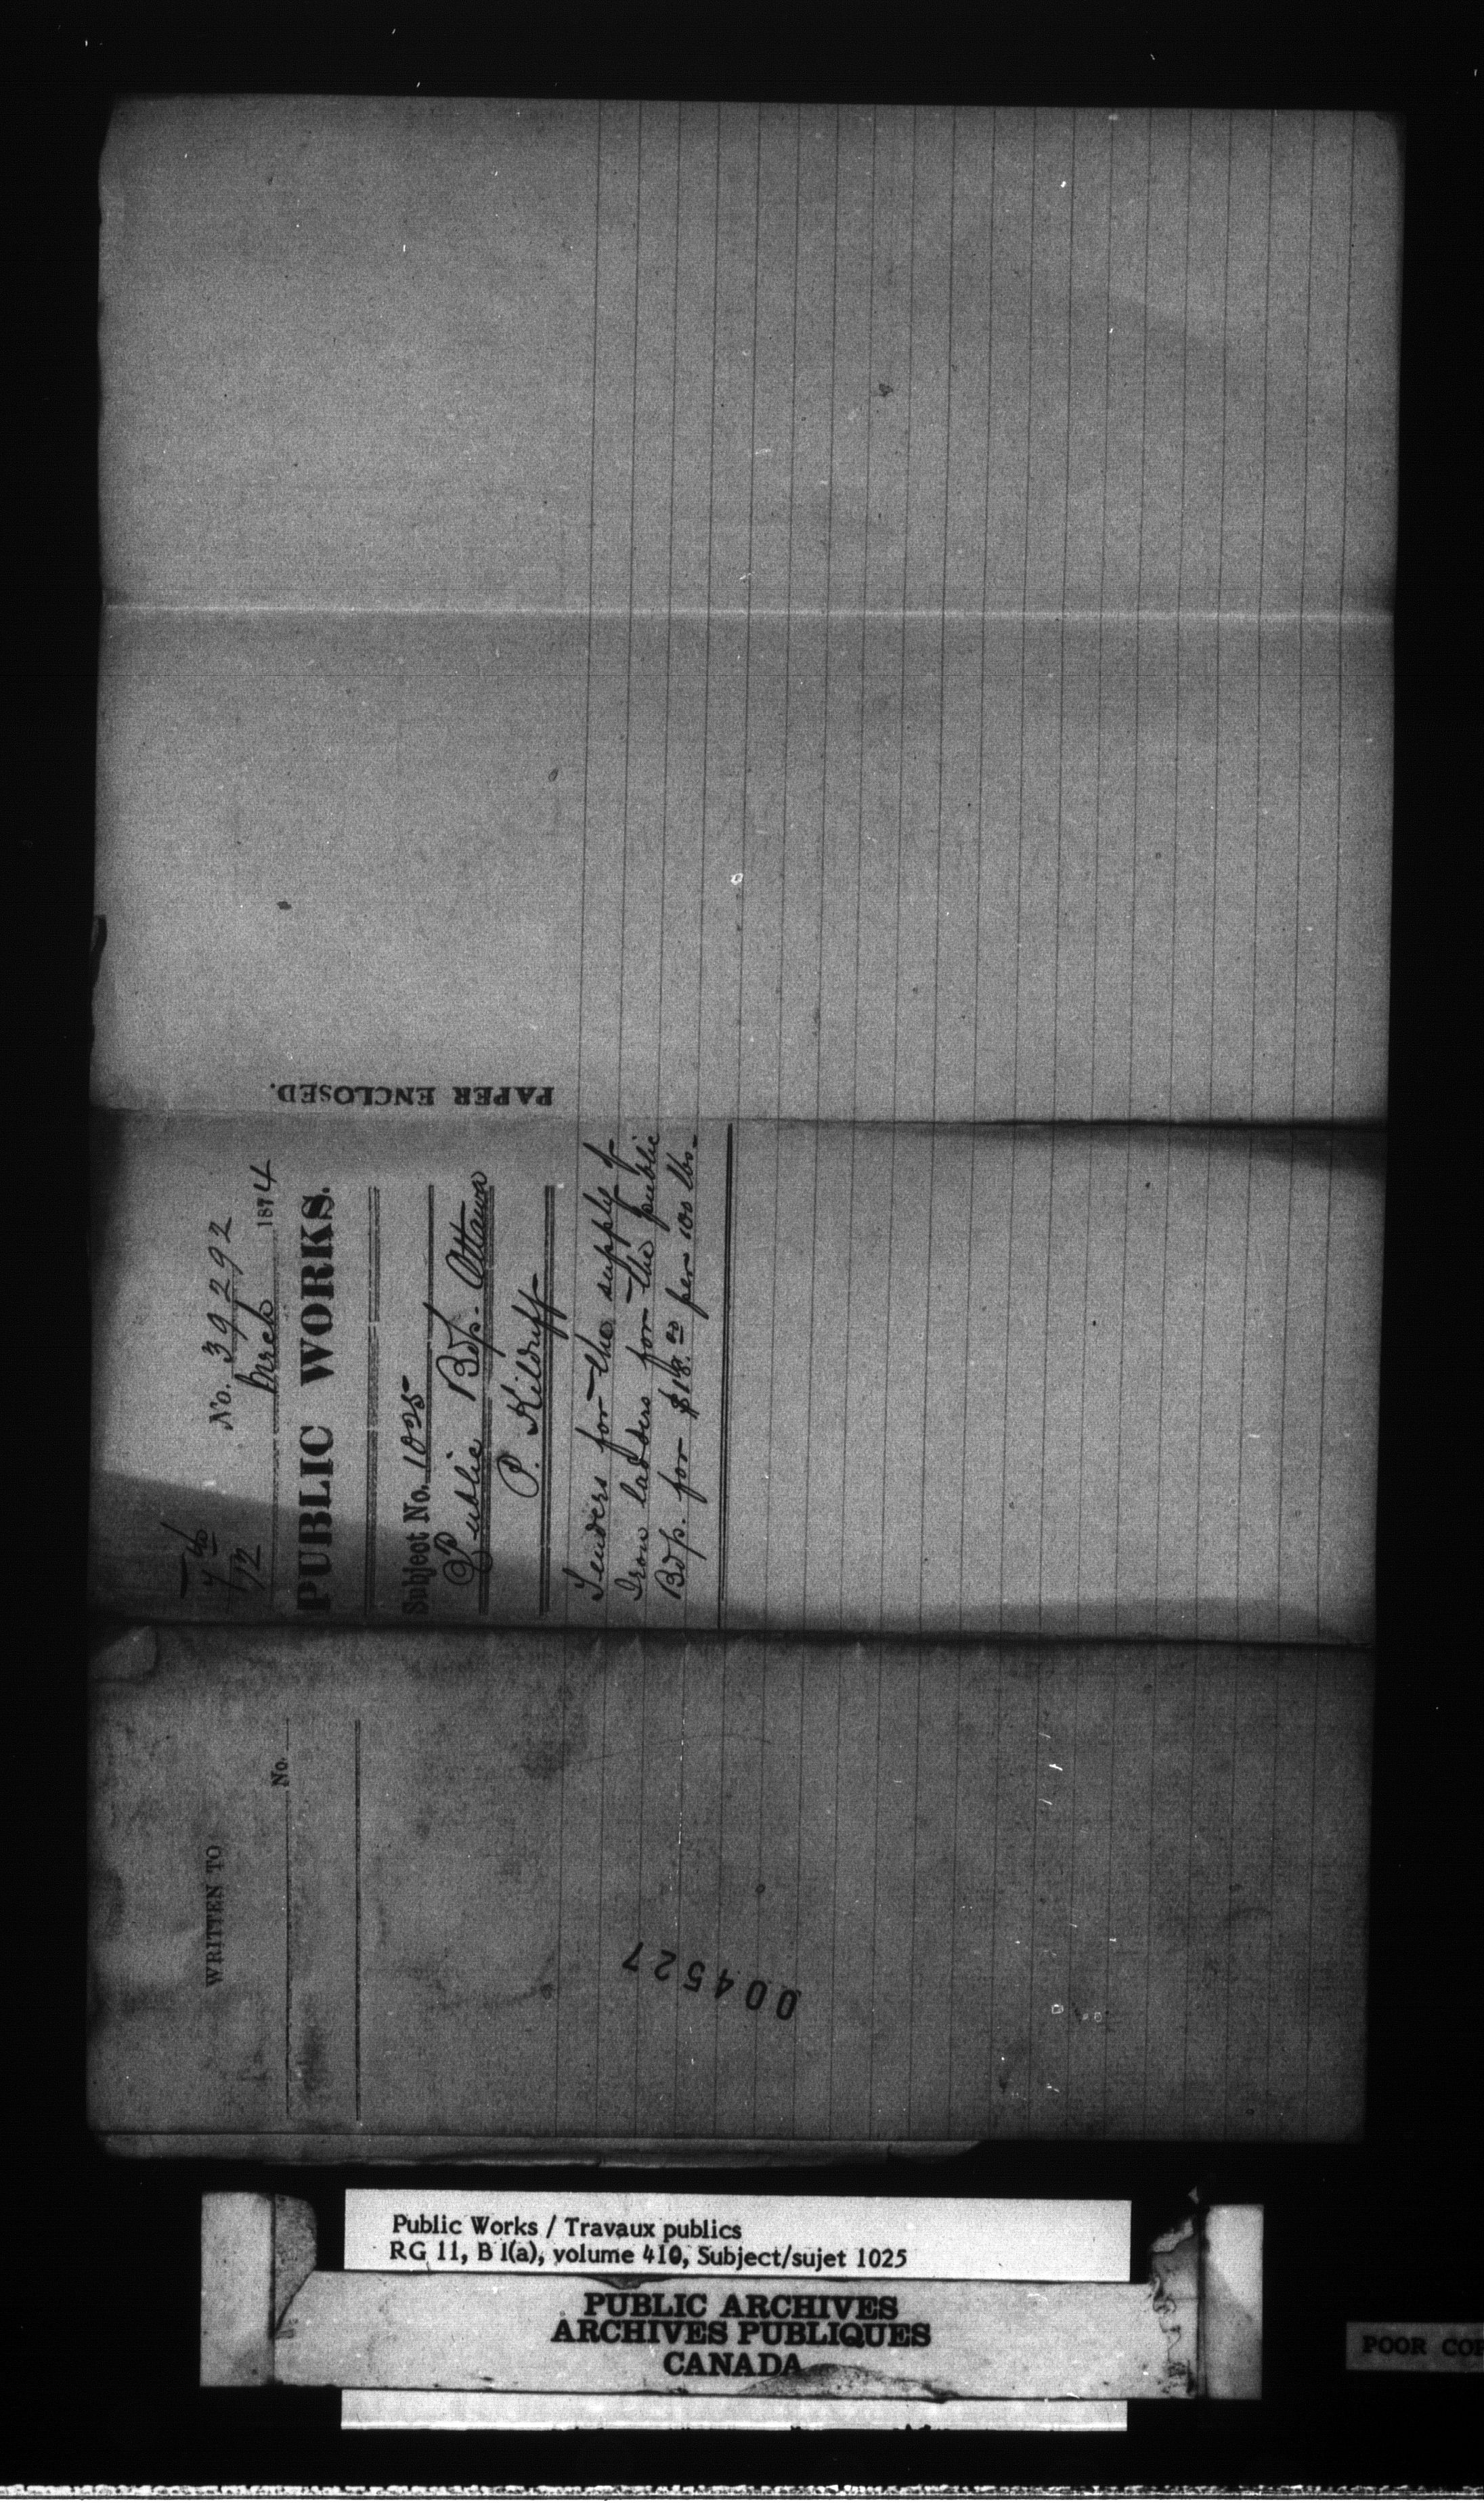 No. 39292
March 1874
PUBLIC WORKS.
Subject No. 1025
Public Bdgs. Ottawa
P. Kilduff
Tenders for the supply of
Iron ladders for the public
Bdgs. for $18.00 per 100 lbs-
PAPER ENCLOSED.
WRITTEN TO
No.
004527
Public Works / Travaux publics
RG 11, B 1(a), volume 410, Subject/sujet 1025
PUBLIC ARCHIVES
ARCHIVES PUBLIQUES
CANADA
POOR